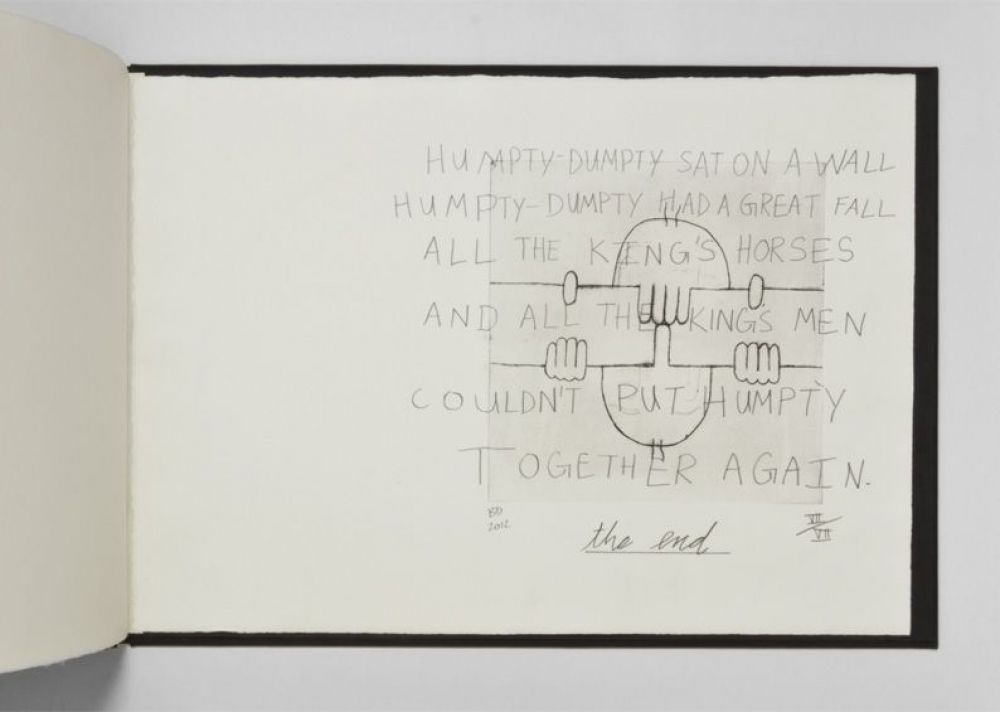 HUMPTY-DUMPTY SAT ON A WALL
HUMPTY-DUMPTY HAD A GREAT FALL
ALL THE KING'S HORSES
AND ALL THE KING'S MEN
COULDN'T PUT HUMPTY
TOGETHER AGAIN.
BD
2012
the end
VII
VII